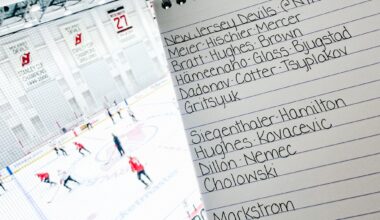 27
STANLEY CUP
CHAMPIONS
New Jersey Devils @
Meier·Hischier·Mercer
Bratt·Hughes·Brown
Hämeenaho·Glass·Bjugstad
Dadonov·Cotter·Tsyplakov
Gritsyuk
Siegenthaler·Hamilton
Hughes·Kovacevic
Dillon·Nemec
Cholowski
Markstrom